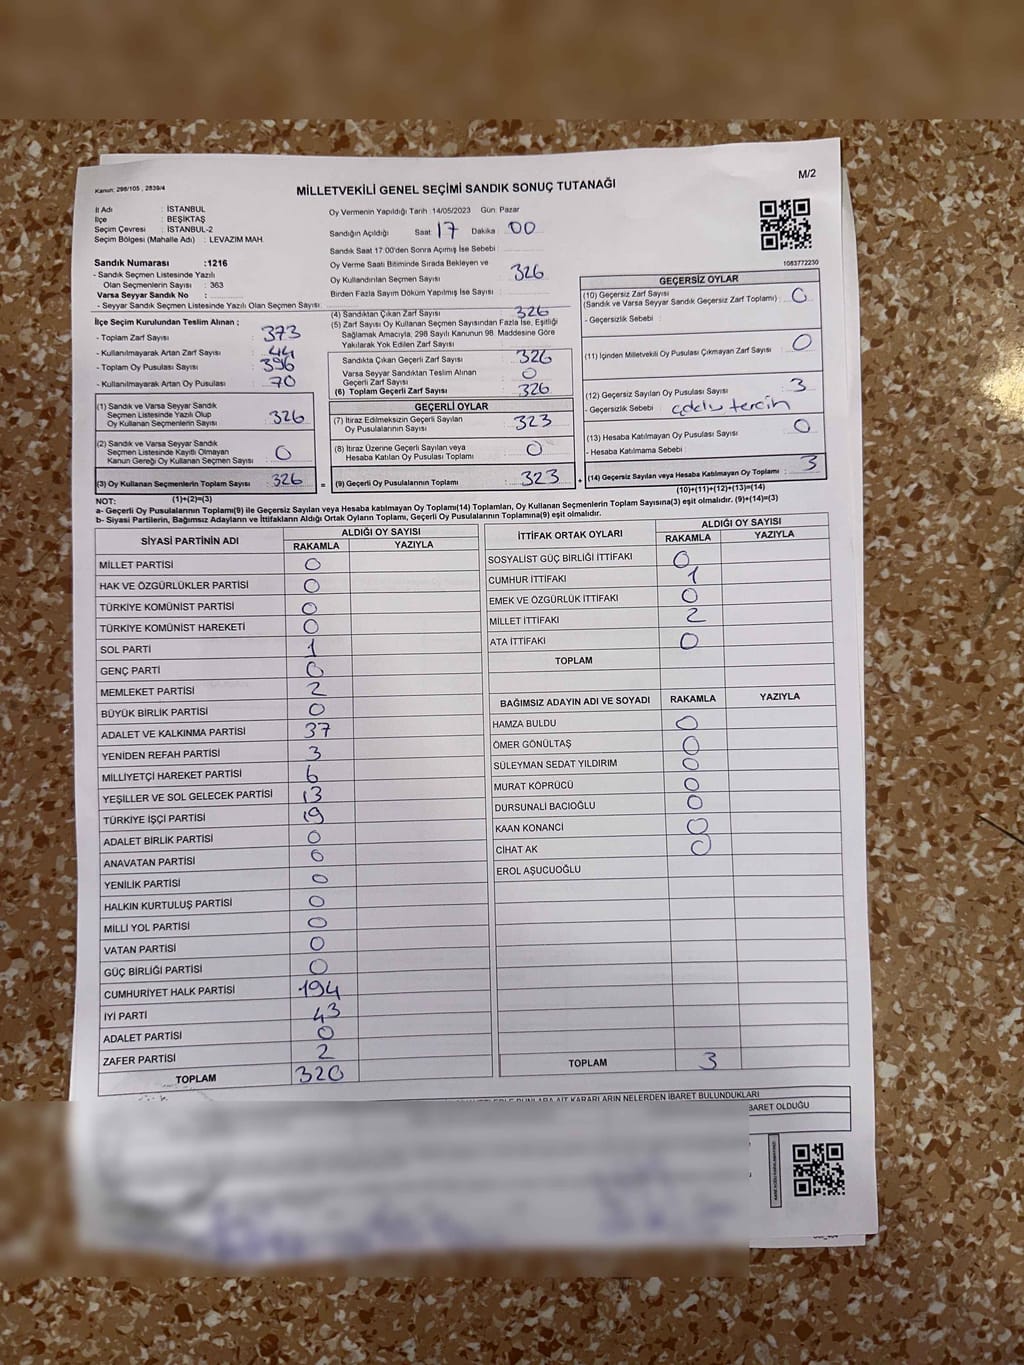 M/2
Kanun: 298/105 , 2839/4
MİLLETVEKİLİ GENEL SEÇİMİ SANDIK SONUÇ TUTANAĞI
İl Adı : İSTANBUL
İlçe : BEŞİKTAŞ
Seçim Çevresi : İSTANBUL-2
Seçim Bölgesi (Mahalle Adı) : LEVAZIM MAH.
Sandık Numarası :1216
- Sandık Seçmen Listesinde Yazılı
Olan Seçmenlerin Sayısı : 363
Varsa Seyyar Sandık No :
- Seyyar Sandık Seçmen Listesinde Yazılı Olan Seçmen Sayısı
İlçe Seçim Kurulundan Teslim Alınan ;
- Toplam Zarf Sayısı : 373
- Kullanılmayarak Artan Zarf Sayısı : 44
- Toplam Oy Pusulası Sayısı : 396
- Kullanılmayarak Artan Oy Pusulası : 70
(1) Sandık ve Varsa Seyyar Sandık
Seçmen Listesinde Yazılı Olup
Oy Kullanan Seçmenlerin Sayısı : 326
(2) Sandık ve Varsa Seyyar Sandık
Seçmen Listesinde Kayıtlı Olmayan
Kanun Gereği Oy Kullanan Seçmen Sayısı : 0
(3) Oy Kullanan Seçmenlerin Toplam Sayısı : 326
(1)+(2)=(3)
Oy Vermenin Yapıldığı Tarih :14/05/2023 Gün: Pazar
Sandığın Açıldığı Saat 17 Dakika : 00
Sandık Saat 17:00'den Sonra Açılmış İse Sebebi :
Oy Verme Saati Bitiminde Sırada Bekleyen ve
Oy Kullandırılan Seçmen Sayısı : 326
Birden Fazla Sayım Döküm Yapılmış İse Sayısı :
(4) Sandıktan Çıkan Zarf Sayısı : 326
(5) Zarf Sayısı Oy Kullanan Seçmen Sayısından Fazla İse, Eşitliği
Sağlamak Amacıyla, 298 Sayılı Kanunun 98. Maddesine Göre
Yakılarak Yok Edilen Zarf Sayısı :
Sandıkta Çıkan Geçerli Zarf Sayısı : 326
Varsa Seyyar Sandıktan Teslim Alınan
Geçerli Zarf Sayısı : 0
(6) Toplam Geçerli Zarf Sayısı : 326
GEÇERLİ OYLAR
(7) İtiraz Edilmeksizin Geçerli Sayılan
Oy Pusulalarının Sayısı : 323
(8) İtiraz Üzerine Geçerli Sayılan veya
Hesaba Katılan Oy Pusulası Toplamı : 0
= (9) Geçerli Oy Pusulalarının Toplamı : 323
1083772230
GEÇERSİZ OYLAR
(10) Geçersiz Zarf Sayısı
(Sandık ve Varsa Seyyar Sandık Geçersiz Zarf Toplamı) : 0
- Geçersizlik Sebebi :
(11) İçinden Milletvekili Oy Pusulası Çıkmayan Zarf Sayısı : 0
(12) Geçersiz Sayılan Oy Pusulası Sayısı : 3
- Geçersizlik Sebebi : çoklu tercih
(13) Hesaba Katılmayan Oy Pusulası Sayısı : 0
- Hesaba Katılmama Sebebi :
+ (14) Geçersiz Sayılan veya Hesaba Katılmayan Oy Toplamı : 3
(10)+(11)+(12)+(13)=(14)
NOT:
a- Geçerli Oy Pusulalarının Toplamı(9) ile Geçersiz Sayılan veya Hesaba katılmayan Oy Toplamı(14) Toplamları, Oy Kullanan Seçmenlerin Toplam Sayısına(3) eşit olmalıdır. (9)+(14)=(3)
b- Siyasi Partilerin, Bağımsız Adayların ve İttifakların Aldığı Ortak Oyların Toplamı, Geçerli Oy Pusulalarının Toplamına(9) eşit olmalıdır.
SİYASİ PARTİNİN ADI ALDIĞI OY SAYISI
RAKAMLA YAZIYLA
MİLLET PARTİSİ 0
HAK VE ÖZGÜRLÜKLER PARTİSİ 0
TÜRKİYE KOMÜNİST PARTİSİ 0
TÜRKİYE KOMÜNİST HAREKETİ 0
SOL PARTİ 1
GENÇ PARTİ 0
MEMLEKET PARTİSİ 2
BÜYÜK BİRLİK PARTİSİ 0
ADALET VE KALKINMA PARTİSİ 37
YENİDEN REFAH PARTİSİ 3
MİLLİYETÇİ HAREKET PARTİSİ 6
YEŞİLLER VE SOL GELECEK PARTİSİ 13
TÜRKİYE İŞÇİ PARTİSİ 19
ADALET BİRLİK PARTİSİ 0
ANAVATAN PARTİSİ 0
YENİLİK PARTİSİ 0
HALKIN KURTULUŞ PARTİSİ 0
MİLLİ YOL PARTİSİ 0
VATAN PARTİSİ 0
GÜÇ BİRLİĞİ PARTİSİ 0
CUMHURİYET HALK PARTİSİ 194
İYİ PARTİ 43
ADALET PARTİSİ 0
ZAFER PARTİSİ 2
TOPLAM 320
İTTİFAK ORTAK OYLARI ALDIĞI OY SAYISI
RAKAMLA YAZIYLA
SOSYALİST GÜÇ BİRLİĞİ İTTİFAKI 0
CUMHUR İTTİFAKI 1
EMEK VE ÖZGÜRLÜK İTTİFAKI 0
MİLLET İTTİFAKI 2
ATA İTTİFAKI 0
TOPLAM
BAĞIMSIZ ADAYIN ADI VE SOYADI RAKAMLA YAZIYLA
HAMZA BULDU 0
ÖMER GÖNÜLTAŞ 0
SÜLEYMAN SEDAT YILDIRIM 0
MURAT KÖPRÜCÜ 0
DURSUNALİ BACIOĞLU 0
KAAN KONANCİ 0
CİHAT AK 0
EROL AŞUCUOĞLU
TOPLAM 3
BUNLARA AİT KARARLARIN NELERDEN İBARET BULUNDUKLARI
BARET OLDUĞU